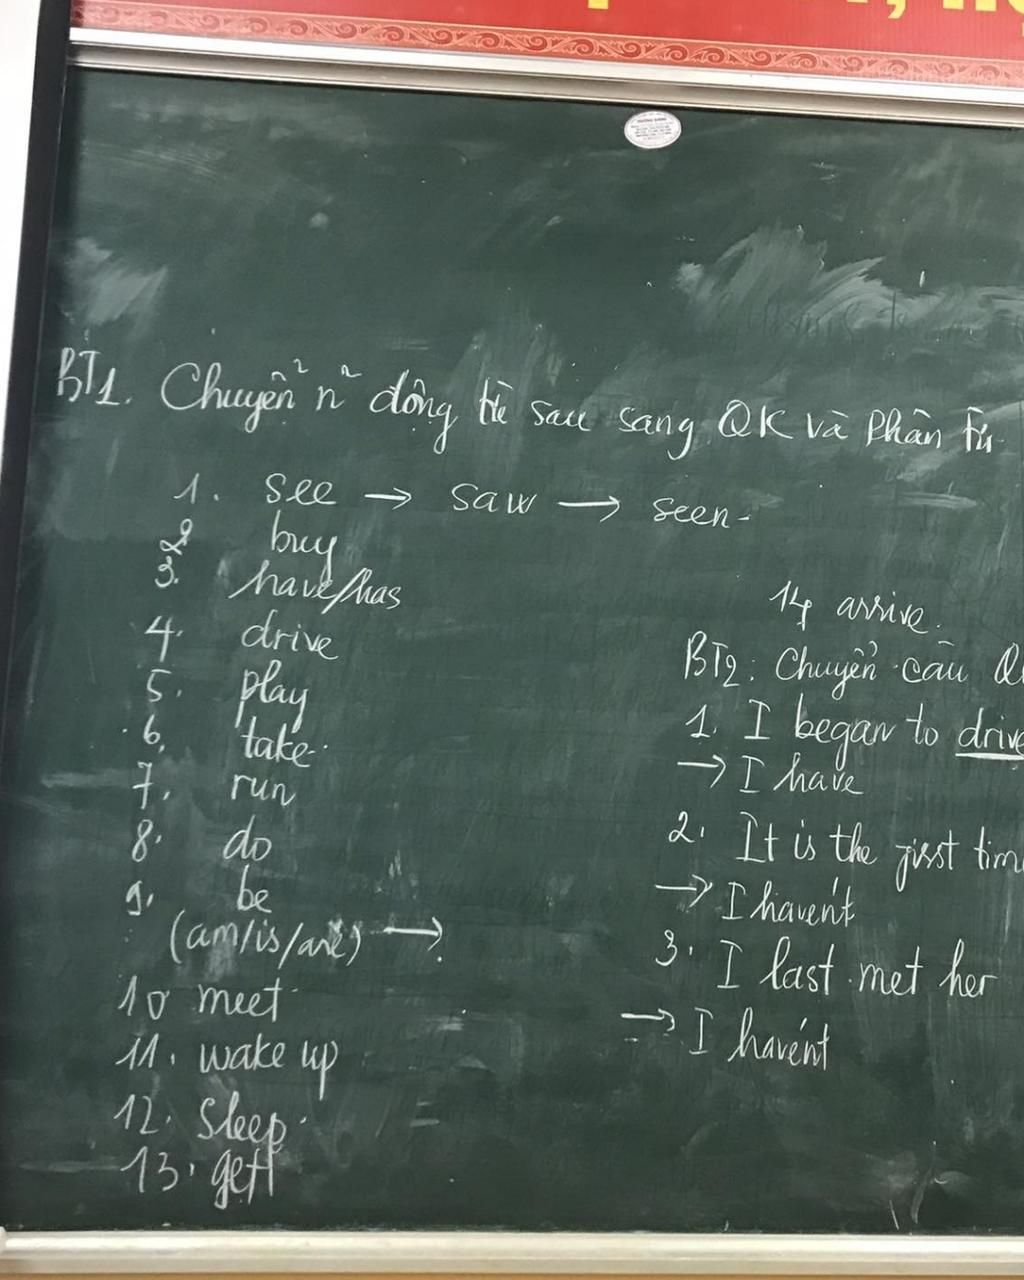 BT1. Chuyển n~ động từ sau sang QK và Phân từ
1. see → saw → seen
2. buy
3. have/has
4. drive
5. play
6. take
7. run
8. do
9. be
(am/is/are) →
10 meet
11. wake up
12. Sleep
13. get
14 arrive.
BT2: Chuyển câu
1. I began to drive
→ I have
2. It is the first time
→ I haven't
3. I last met her
→ I haven't